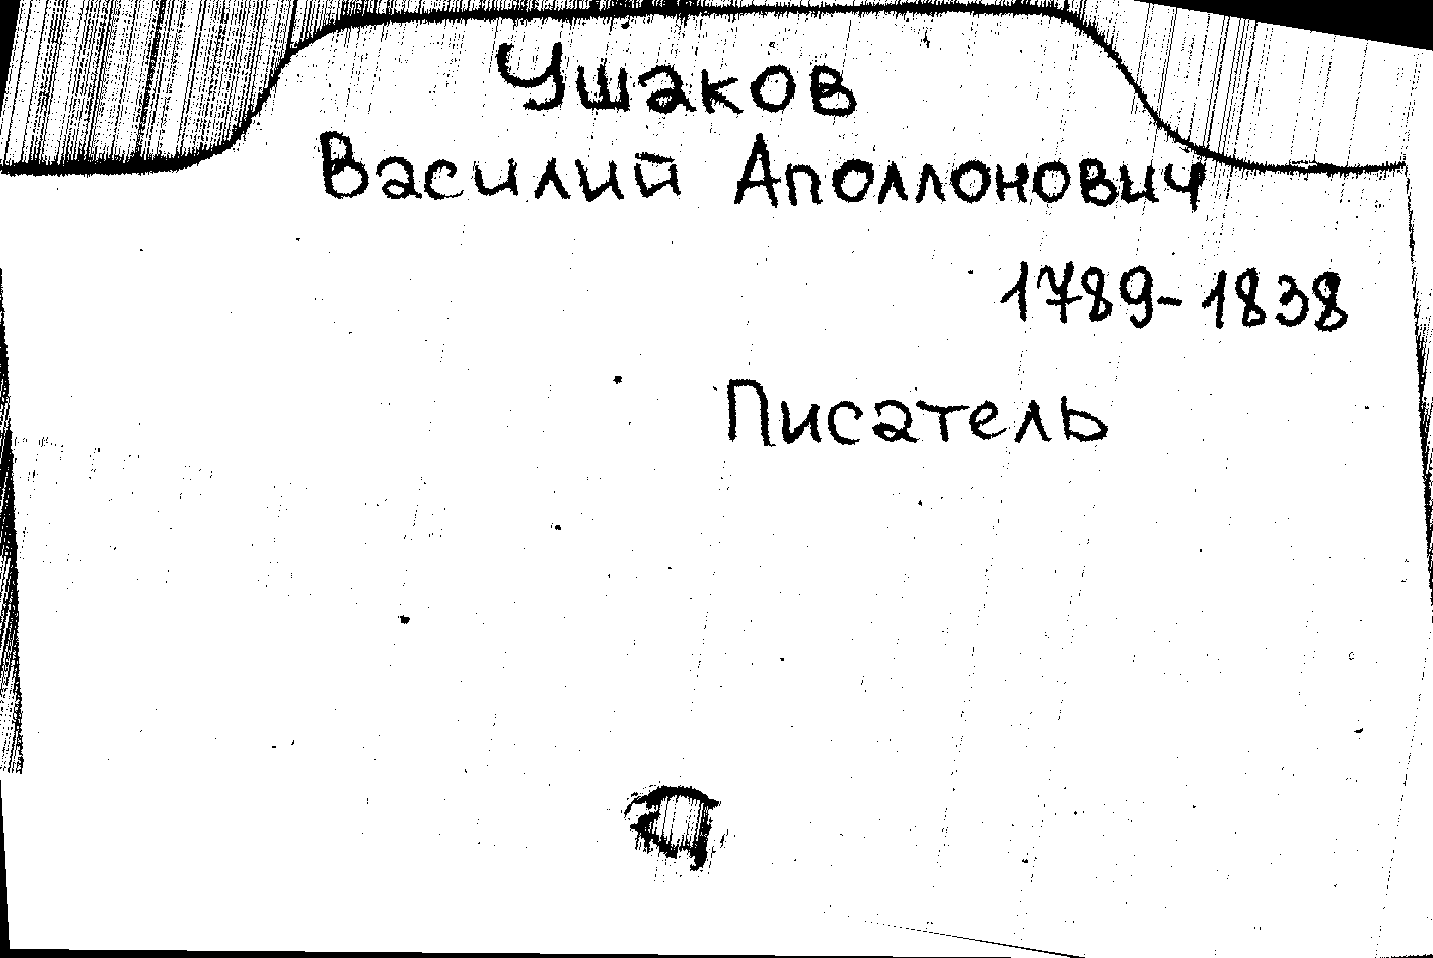 Ушаков
Василий Аполлонович
1789-1838
Писатель